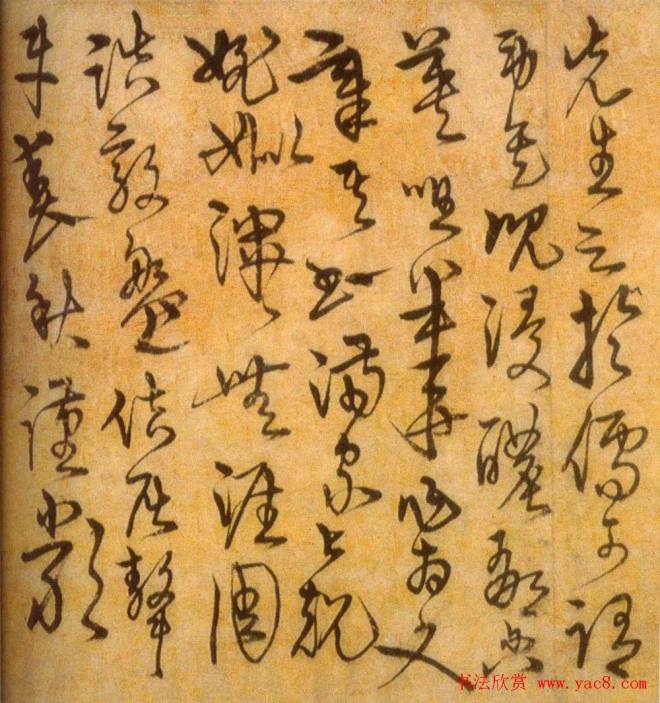 先生之於儒可謂
勞矣沉浸醲郁含
英咀華作為文
章其書滿家上規
姚姒渾渾無涯周
誥殷盤佶屈聱
牙春秋謹嚴
书法欣赏 www.yac8.com